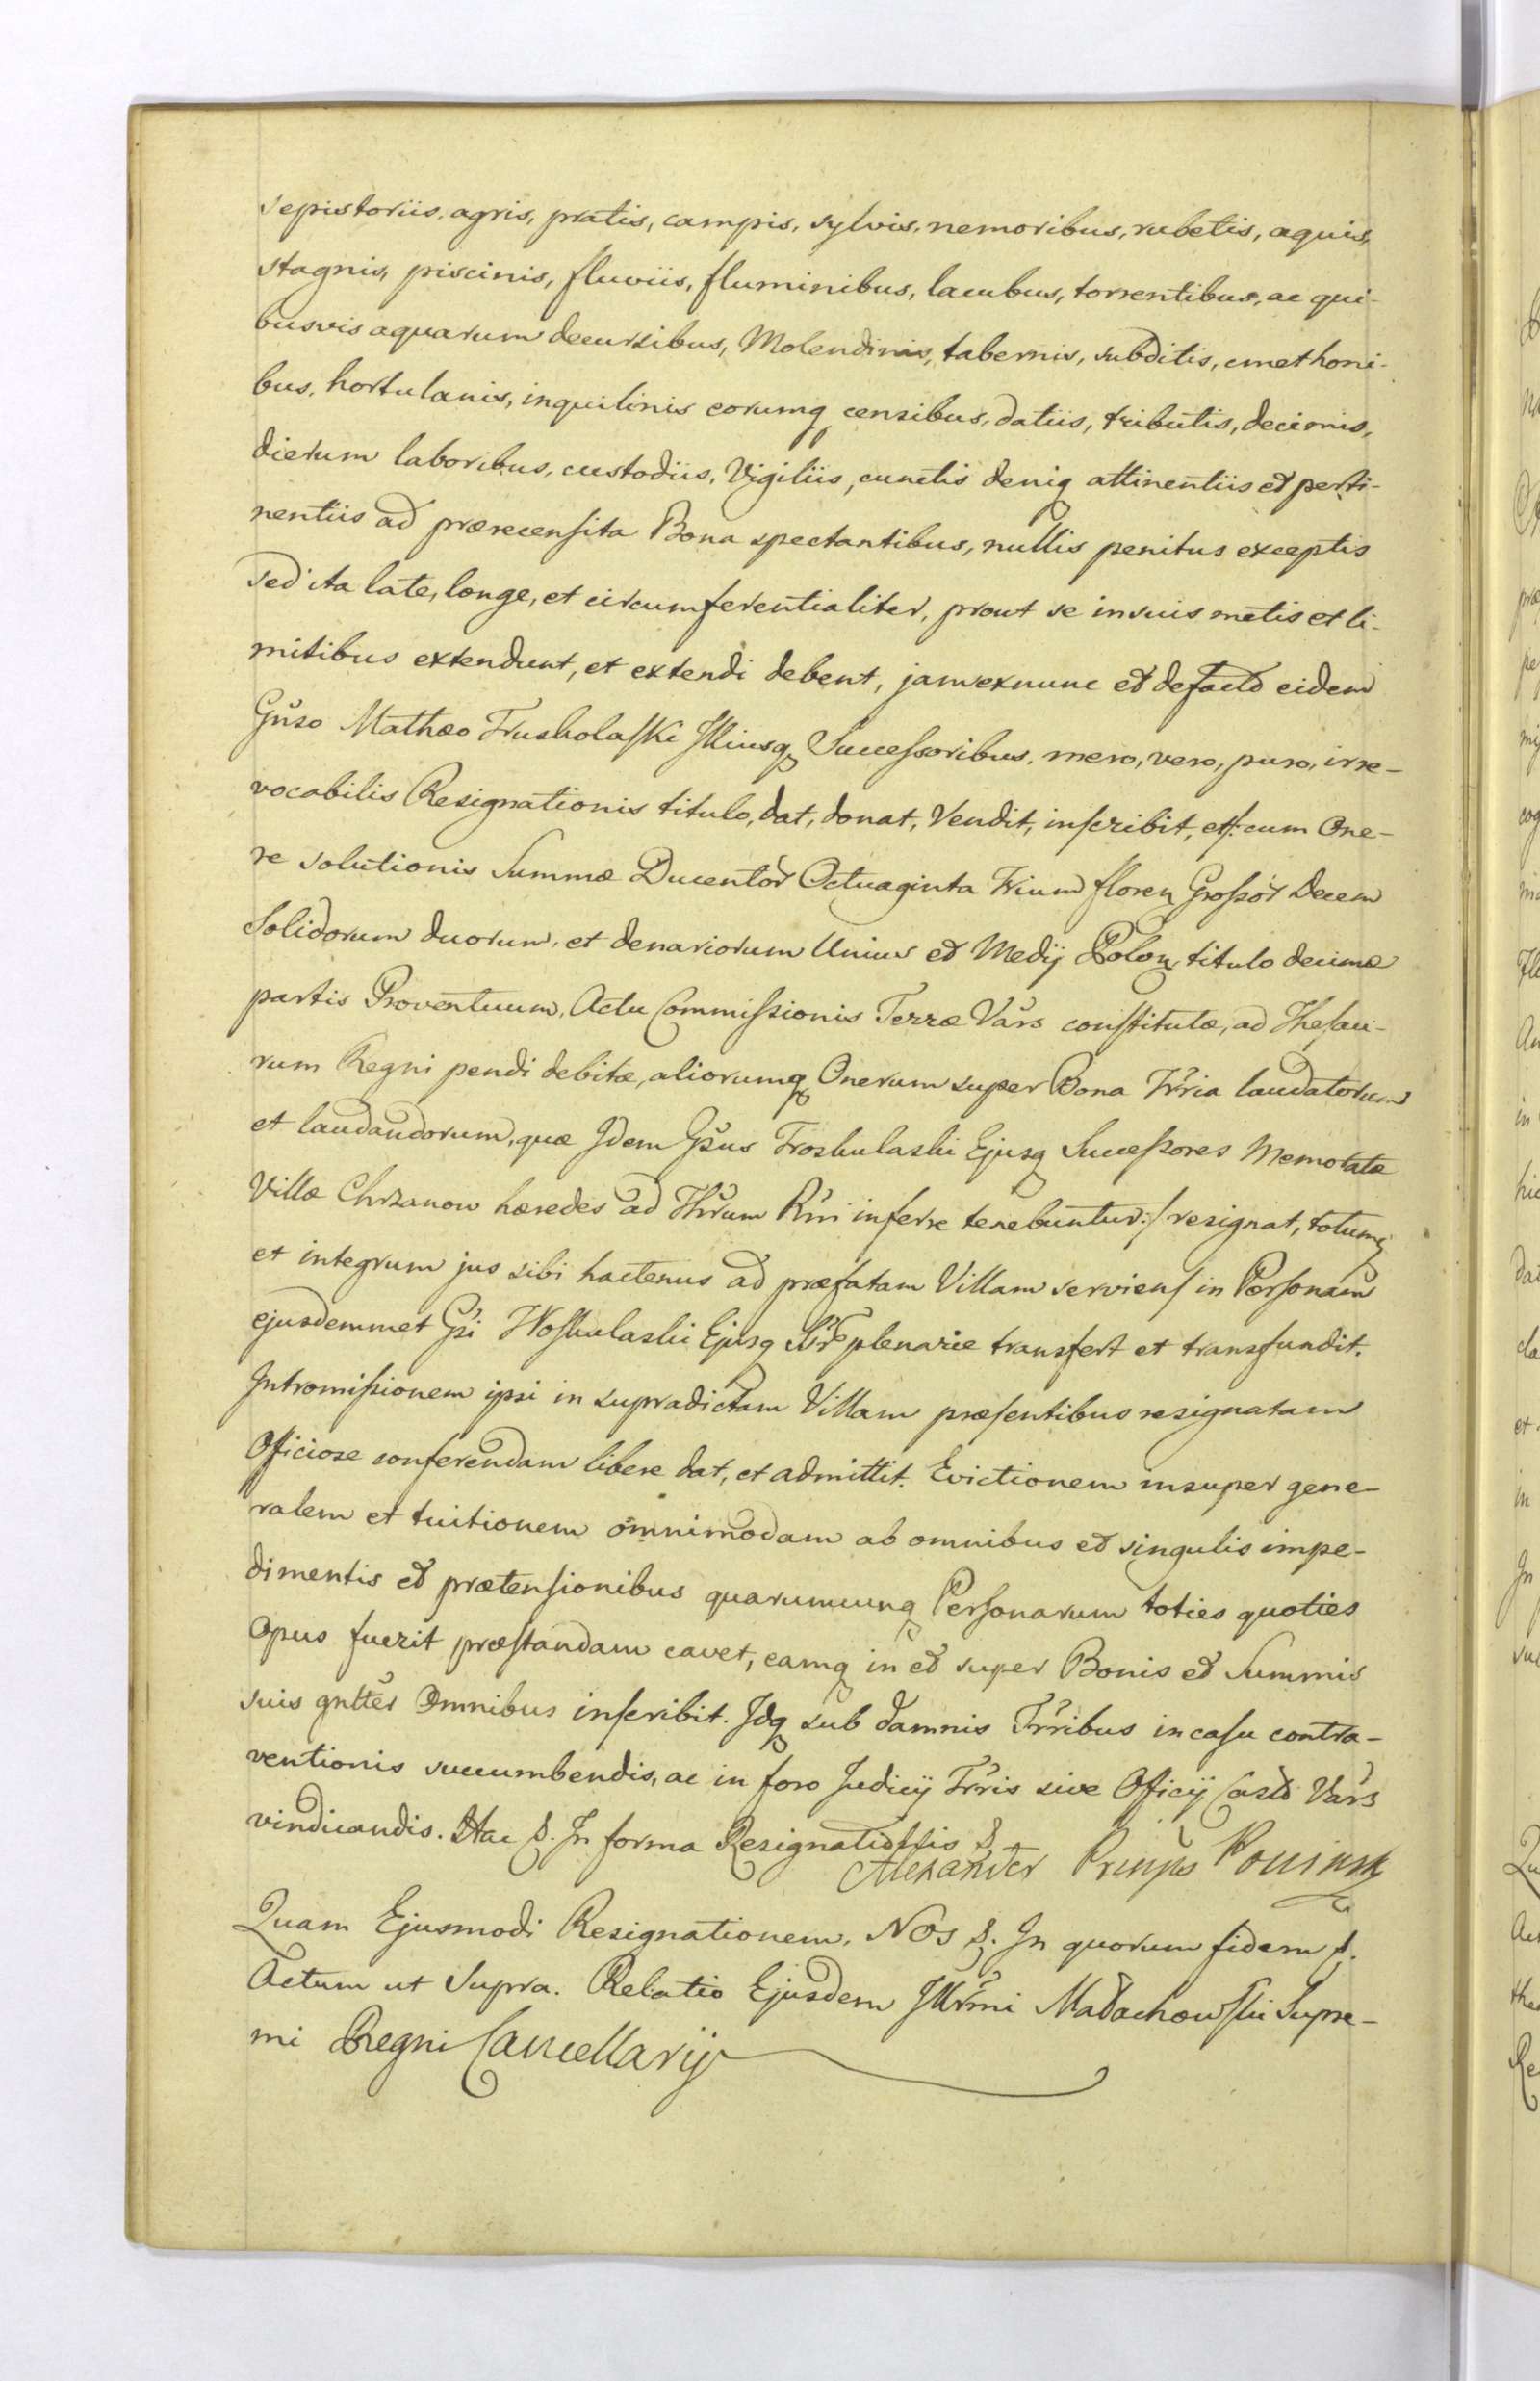 sepistoriis, agris, pratis, campis, sylvis, nemoribus, rubetis, aquis,
stagnis, piscinis, fluviis, fluminibus, lacubus, torrentibus, ac qui-
busvis aquarum decursibus, Molendinis, tabernis, subditis, cmethoni-
bus, hortulanis, inquilinis eorumq censibus, datiis, tributis, decimis,
dierum laboribus, custodiis, Vigiliis, cunctis deniq attinentiis et perti-
nentiis ad prærecensita Bona spectantibus, nullis penitus exceptis
sed ita late, longe, et circumferentialiter, prout se in suis metis et li-
mitibus extendunt, et extendi debent, jam exnunc et defacto eidem
Gnso Mathæo Truskolaski Illiusq Successoribus, mero, vero, puro, irre-
vocabilis Resignationis titulo, dat, donat, Vendit, inscribit, et /: cum One-
re solutionis Summæ Ducentor Octuaginta Trium floren Grossor Decem
Solidorum duorum, et denariorum Unius et Medij Polon titulo decimæ
partis Proventuum, Actu Commissionis Terræ Vars constitutæ, ad Thesau-
rum Regni pendi debitæ, aliorumq Onerum super Bona Trria laudatorum
et laudandorum, quæ Idem Gsus Troskulaski Ejusq Successores Memoratæ
Villæ Chrzanow hæredes ad Thrum Rni inferre tenebuntur :/ resignat, totumq
et integrum jus sibi hactenus ad præfatam Villam serviens in Personam
ejusdemmet Gsi Troskulaski Ejusq plenarie transfert et transfundit.
Intromissionem ipsi in supradictam Villam præsentibus resignatam
Officiose conferendam libere dat, et admittit. Evictionem insuper gene-
ralem et tuitionem omnimodam ab omnibus et singulis impe-
dimentis et prætensionibus quarumcunq Personarum toties quoties
Opus fuerit præstandam cavet, eamq in et super Bonis et Summis
suis gnlter Omnibus inscribit. Idq sub damnis Trribus in casu contra-
ventionis succumbendis, ac in foro Judicij Trris sive Officij Castr Vars
vindicandis. Hac &. In forma Resignationis &
Alexander Princeps Poninski
Quam Ejusmodi Resignationem, Nos &. In quorum fidem &.
Actum ut Supra. Relatio Ejusdem Illrmi Małachowski Supre-
mi Regni Cancellarij